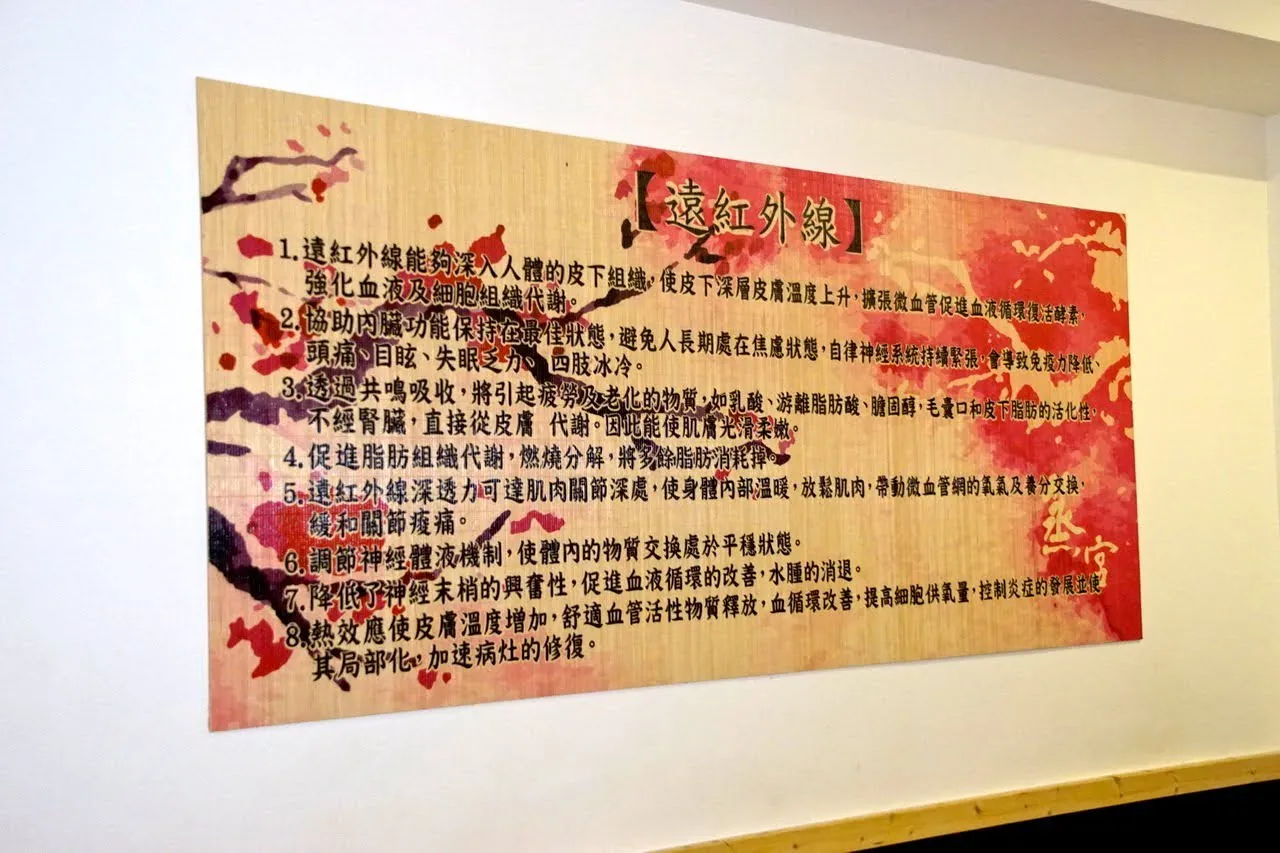 【遠紅外線】
1.遠紅外線能夠深入人體的皮下組織,使皮下深層皮膚溫度上升,擴張微血管促進血液循環復活酵素,
強化血液及細胞組織代謝。
2.協助內臟功能保持在最佳狀態,避免人長期處在焦慮狀態,自律神經系統持續緊張,會導致免疫力降低、
頭痛、目眩、失眠乏力、四肢冰冷。
3.透過共鳴吸收,將引起疲勞及老化的物質,如乳酸、游離脂肪酸、膽固醇,毛囊口和皮下脂肪的活化性,
不經腎臟,直接從皮膚 代謝。因此能使肌膚光滑柔嫩。
4.促進脂肪組織代謝,燃燒分解,將多餘脂肪消耗掉。
5.遠紅外線深透力可達肌肉關節深處,使身體內部溫暖,放鬆肌肉,帶動微血管網的氧氣及養分交換,
緩和關節痠痛。
6.調節神經體液機制,使體內的物質交換處於平穩狀態。
7.降低了神經末梢的興奮性,促進血液循環的改善,水腫的消退。
8.熱效應使皮膚溫度增加,舒適血管活性物質釋放,血循環改善,提高細胞供氧量,控制炎症的發展並使
其局部化,加速病灶的修復。
烝宮